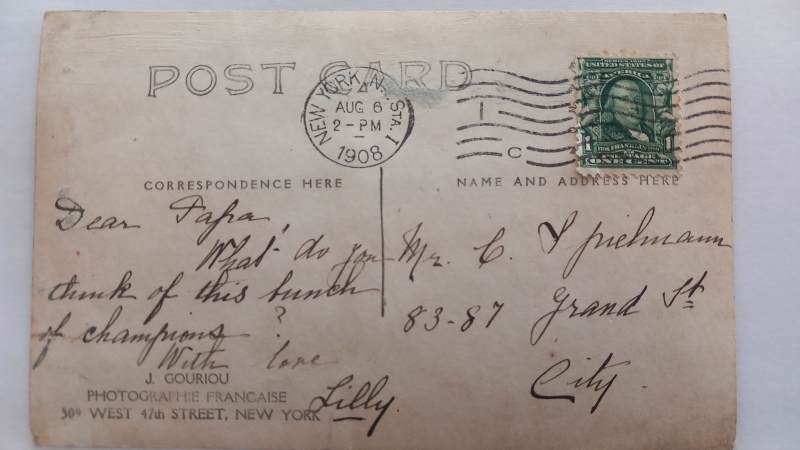 POST CARD
NEW YORK, N.Y. STA. I
AUG 6
2-PM
1908
C
SERIES 1902
UNITED STATES OF
AMERICA
FRANKLIN
1
POSTAGE
ONE CENT
CORRESPONDENCE HERE
NAME AND ADDRESS HERE
Dear Papa,
What do you
think of this bunch
of champions ?
With love
Lilly.
Mr. C. Spielmann
83-87 Grand St
City.
J. GOURIOU
PHOTOGRAPHIE FRANCAISE
309 WEST 47th STREET, NEW YORK